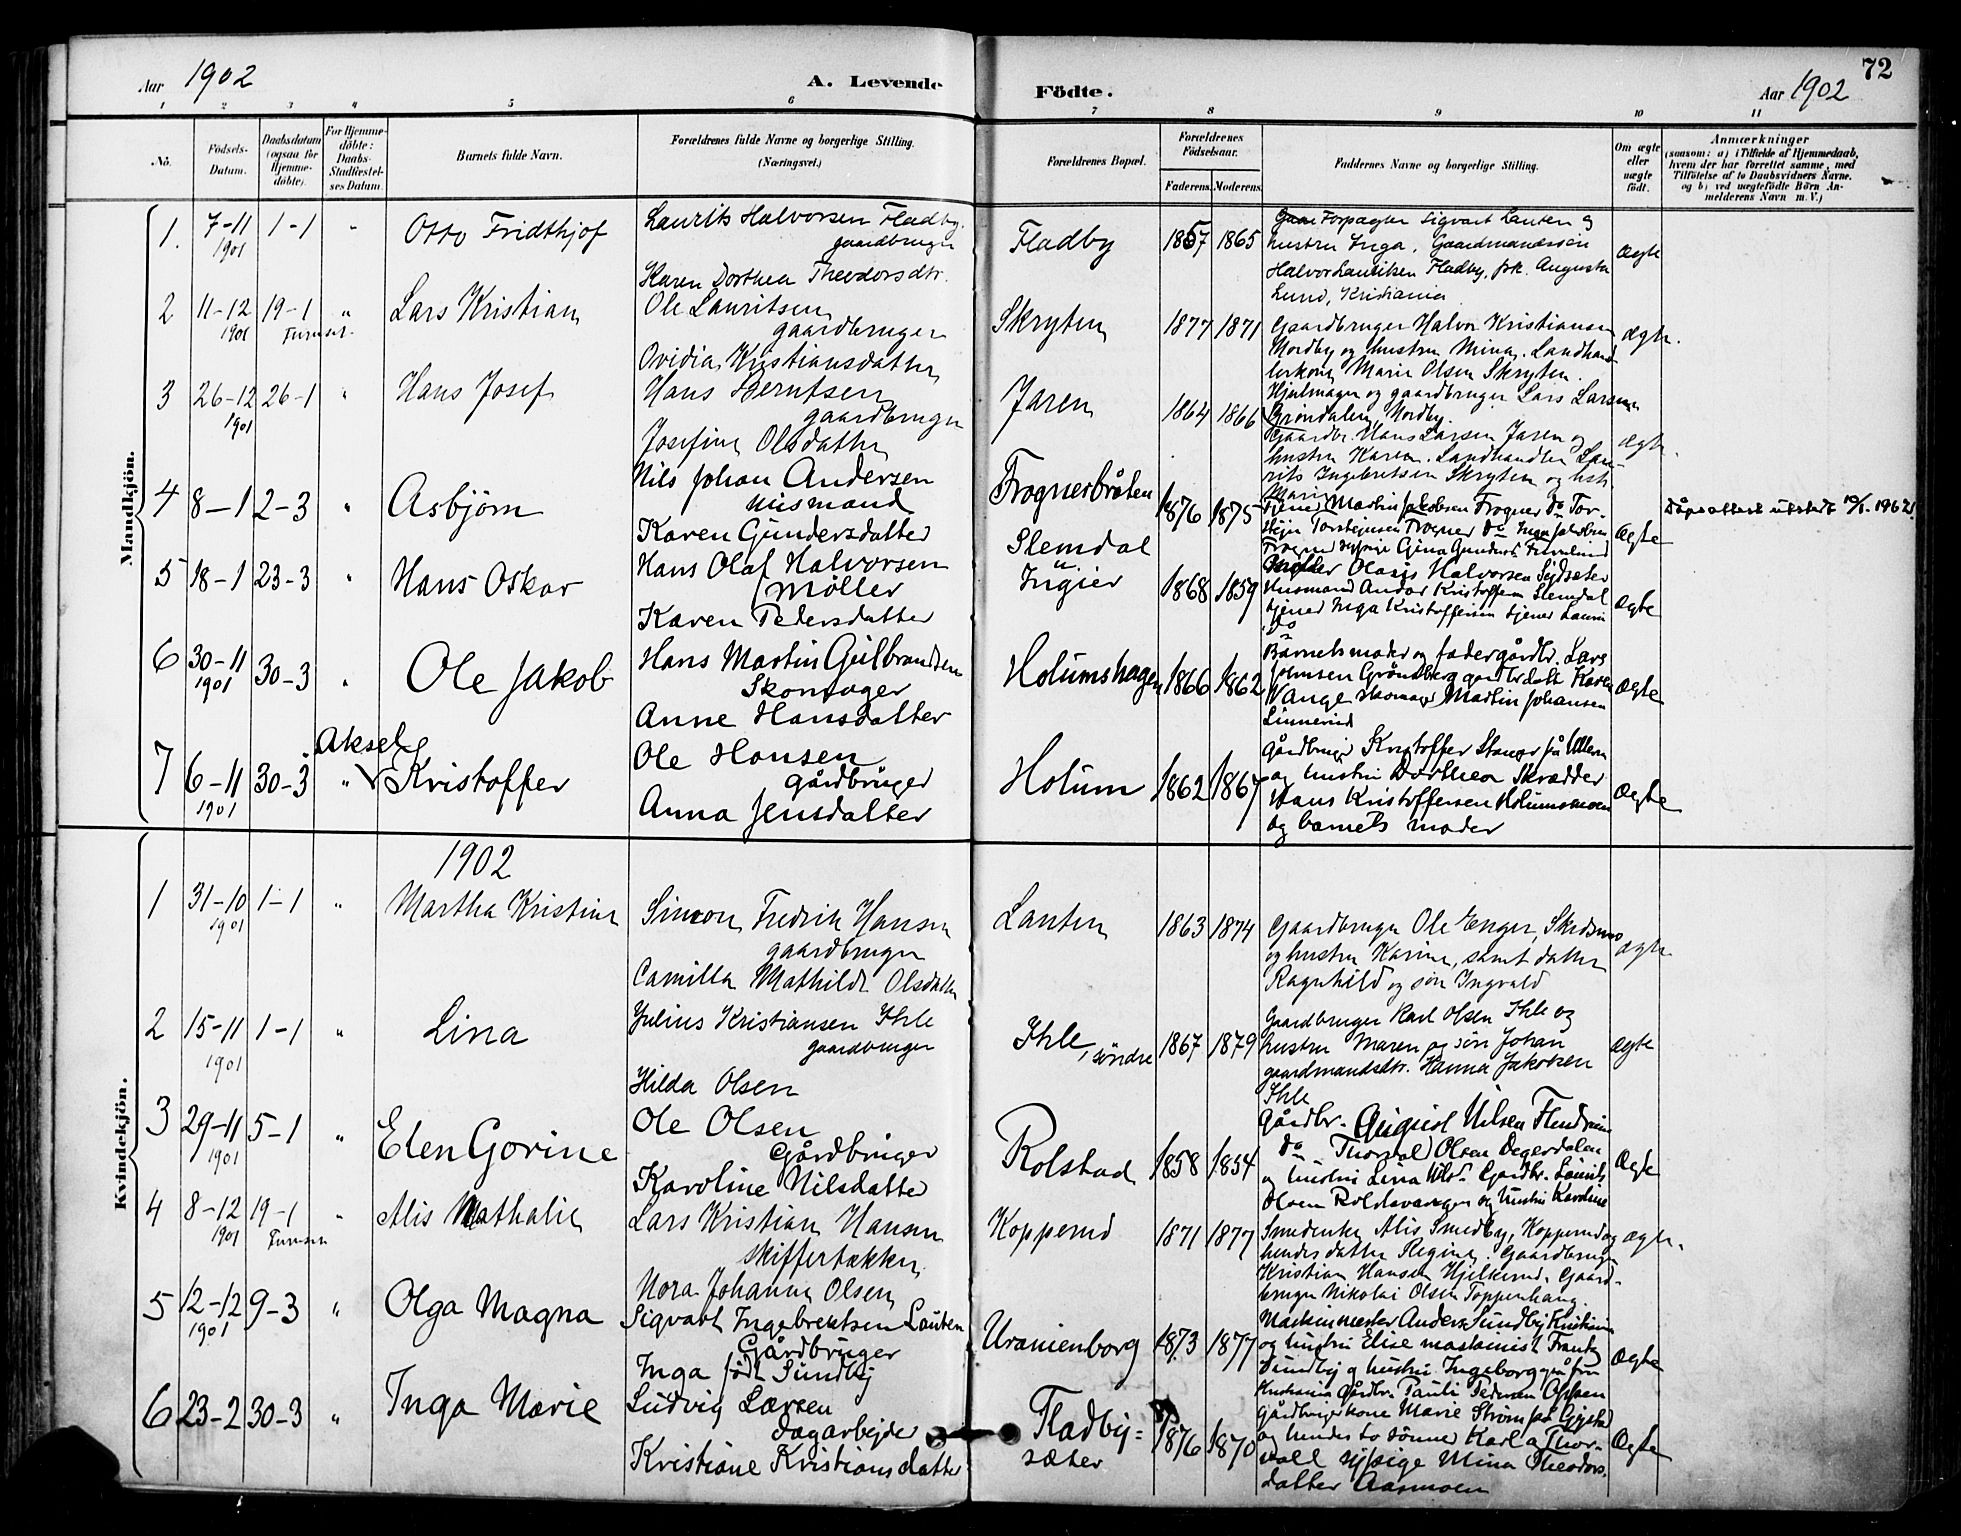 72
Aar 1902
A. Levende
Födte.
Aar 1902
1 2 3 4 5 6 7 8 9 10 11
No.
Födsels-
Datum.
Daabsdatum
(ogsaa for
Hjemme-
döbte).
For Hjemme-
döbte:
Daabs-
Stadfæstel-
ses Datum.
Barnets fulde Navn.
Forældrenes fulde Navne og borgerlige Stilling.
(Næringsvei.)
Forældrenes Bopæl.
Forældrenes
Födselsaar.
Faderens. Moderens.
Faddernes Navne og borgerlige Stilling.
Om ægte
eller
uægte
födt.
Anmærkninger
(saasom: a) i Tilfælde af Hjemmedaab,
hvem der har forrettet samme, med
Tilföielse af to Daabsvidners Navne.
og b) ved uægtefödte Börn An-
melderens Navn m. V.)
Mandkjön.
1. 7-11 1901 1-1 " Otto Fridthjof
Laurits Halvorsen Fladby.
gaardbruger
Karen Dorthea Theodorsdtr.
Fladby 1857 1865
Forpagter Sigvart Lauten og
hustru Inga, Gaardmandssøn
Halvor Lauritsen Fladby, frk. Augusta
Lund, Kristiania
ægte
2 11-12 1901 19-1 Furuset " Lars Kristian
Ole Lauritsen
gaardbruger
Ovidia Kristiansdatter
Skryten 1877 1871
Gaardbruger Halvor Kristiansen
Nordby og hustru Mina. Landhand-
lerkone Marie Olsen Skryten.
ægte.
3 26-12 1901 26-1 " Hans Josef
Hans Berntsen
gaardbruger
Josefine Olsdatter
Jaren 1864 1866
Hjulmager og gaardbruger Lars Larsen
Grøndalen Nordby.
Gaardbr. Hans Larsen Jaren og
hustru Karen. Landhandler Lau-
rits Ingebretsen Skryten og hst.
Marie
ægte.
4 8-1 2-3 " Asbjørn
Nils Johan Andersen
Husmand
Karen Gundersdatter
Frognerbråten 1876 1875
Tjener Martin Jakobsen Frogner do Tor-
stein Torsteinsen Frogner do Inga Jakobsen
Frogner
Ægte
Dåpsattest utstedt 1962.
5 18-1 23-3 " Hans Oskar
Hans Olaf Halvorsen
Møller
Karen Pedersdatter
Slemdal
u.
Ingier 1868 1859
Møller Olaus Halvorsen
Husmand Andor Kristoffersen Slemdal
tjener Inga Kristoffersen tjener
do
Ægte
6 30-11 1901 30-3 " Ole Jakob
Hans Martin Gulbrandsen
Skomager
Anne Hansdatter
Holumshagen 1866 1862
Barnets moder og fader gårdbr. Lars
Johnsen Grøndberg Karen
Wange skomager Martin Johansen
Linnerud
Ægte
7 6-11 1901 30-3 " Aksel Kristoffer
Ole Hansen
Gårdbruger
Anna Jensdatter
Holum 1862 1867
Gårdbruger Kristoffer Stanger på Ullern
og hustru Dorthea Skrædder
Hans Kristoffersen Holumsmoen
og barnets moder
Ægte
Kvindekjön.
1902
1 31-10 1901 1-1 " Martha Kristine
Simon Fredrik Hansen
gaardbruger
Camilla Mathilde Olsdatter
Lauten 1863 1874
Gaardbruger Ole Enger, Skedsmo
og hustru Karine, samt datter
Ragnhild og søn Ingvald
ægte.
2 15-11 1901 1-1 " Lina
Julius Kristiansen Ihle
gaardbruger
Hilda Olsen
Ihle, søndre 1867 1879
Gaardbruger Karl Olsen Ihle og
hustru Maren og søn Johan
gaardmandsdtr. Hanna Jakobsen
Ihle
ægte
3 29-11 1901 5-1 " Elen Gorine
Ole Olsen
Gårdbruger
Karoline Nilsdatter
Rolstad 1858 1854
Gårdbr. August Nilsen
do Thorval Olsen Degerdalen
og hustru Lina Gårdbr. Laurits
Olsen og hustru Karoline
Ægte
4 8-12 1901 19-1 Furuset " Alis Nathalie
Lars Kristian Hansen
skiffertækker
Nora Johanne Olsen
Kopperud 1871 1877
Smedenke Alis Smedby, Kopperud og
hendes datter Regine. Gaardbruger
Kristian Hansen Hjelkerud. Gaard-
bruger Nikolai Olsen Toppenhaug.
ægte.
5 12-12 1901 9-3 " Olga Magna
Sigvart Ingebretsen Lauten
Gårdbruger
Inga født Sundby
Uranienborg 1873 1877
Maskinmester Anders Sundby Kristiania
og hustru Elise maskinist Frants
Sundby og hustru Ingeborg
Kristiania Gårdbr. Pauli Pedersen Oppen
Ægte
6 23-2 30-3 " Inga Marie
Ludvig Larsen
Dagarbejder
Kristiane Kristiansdatter
Fladby-
sæter 1876 1870
Gårdbrugerkone Marie Strøm på Gjestad
og hendes to sønner Karl og Thor-
vall Mina Theodors-
datter Aasmoen
Ægte